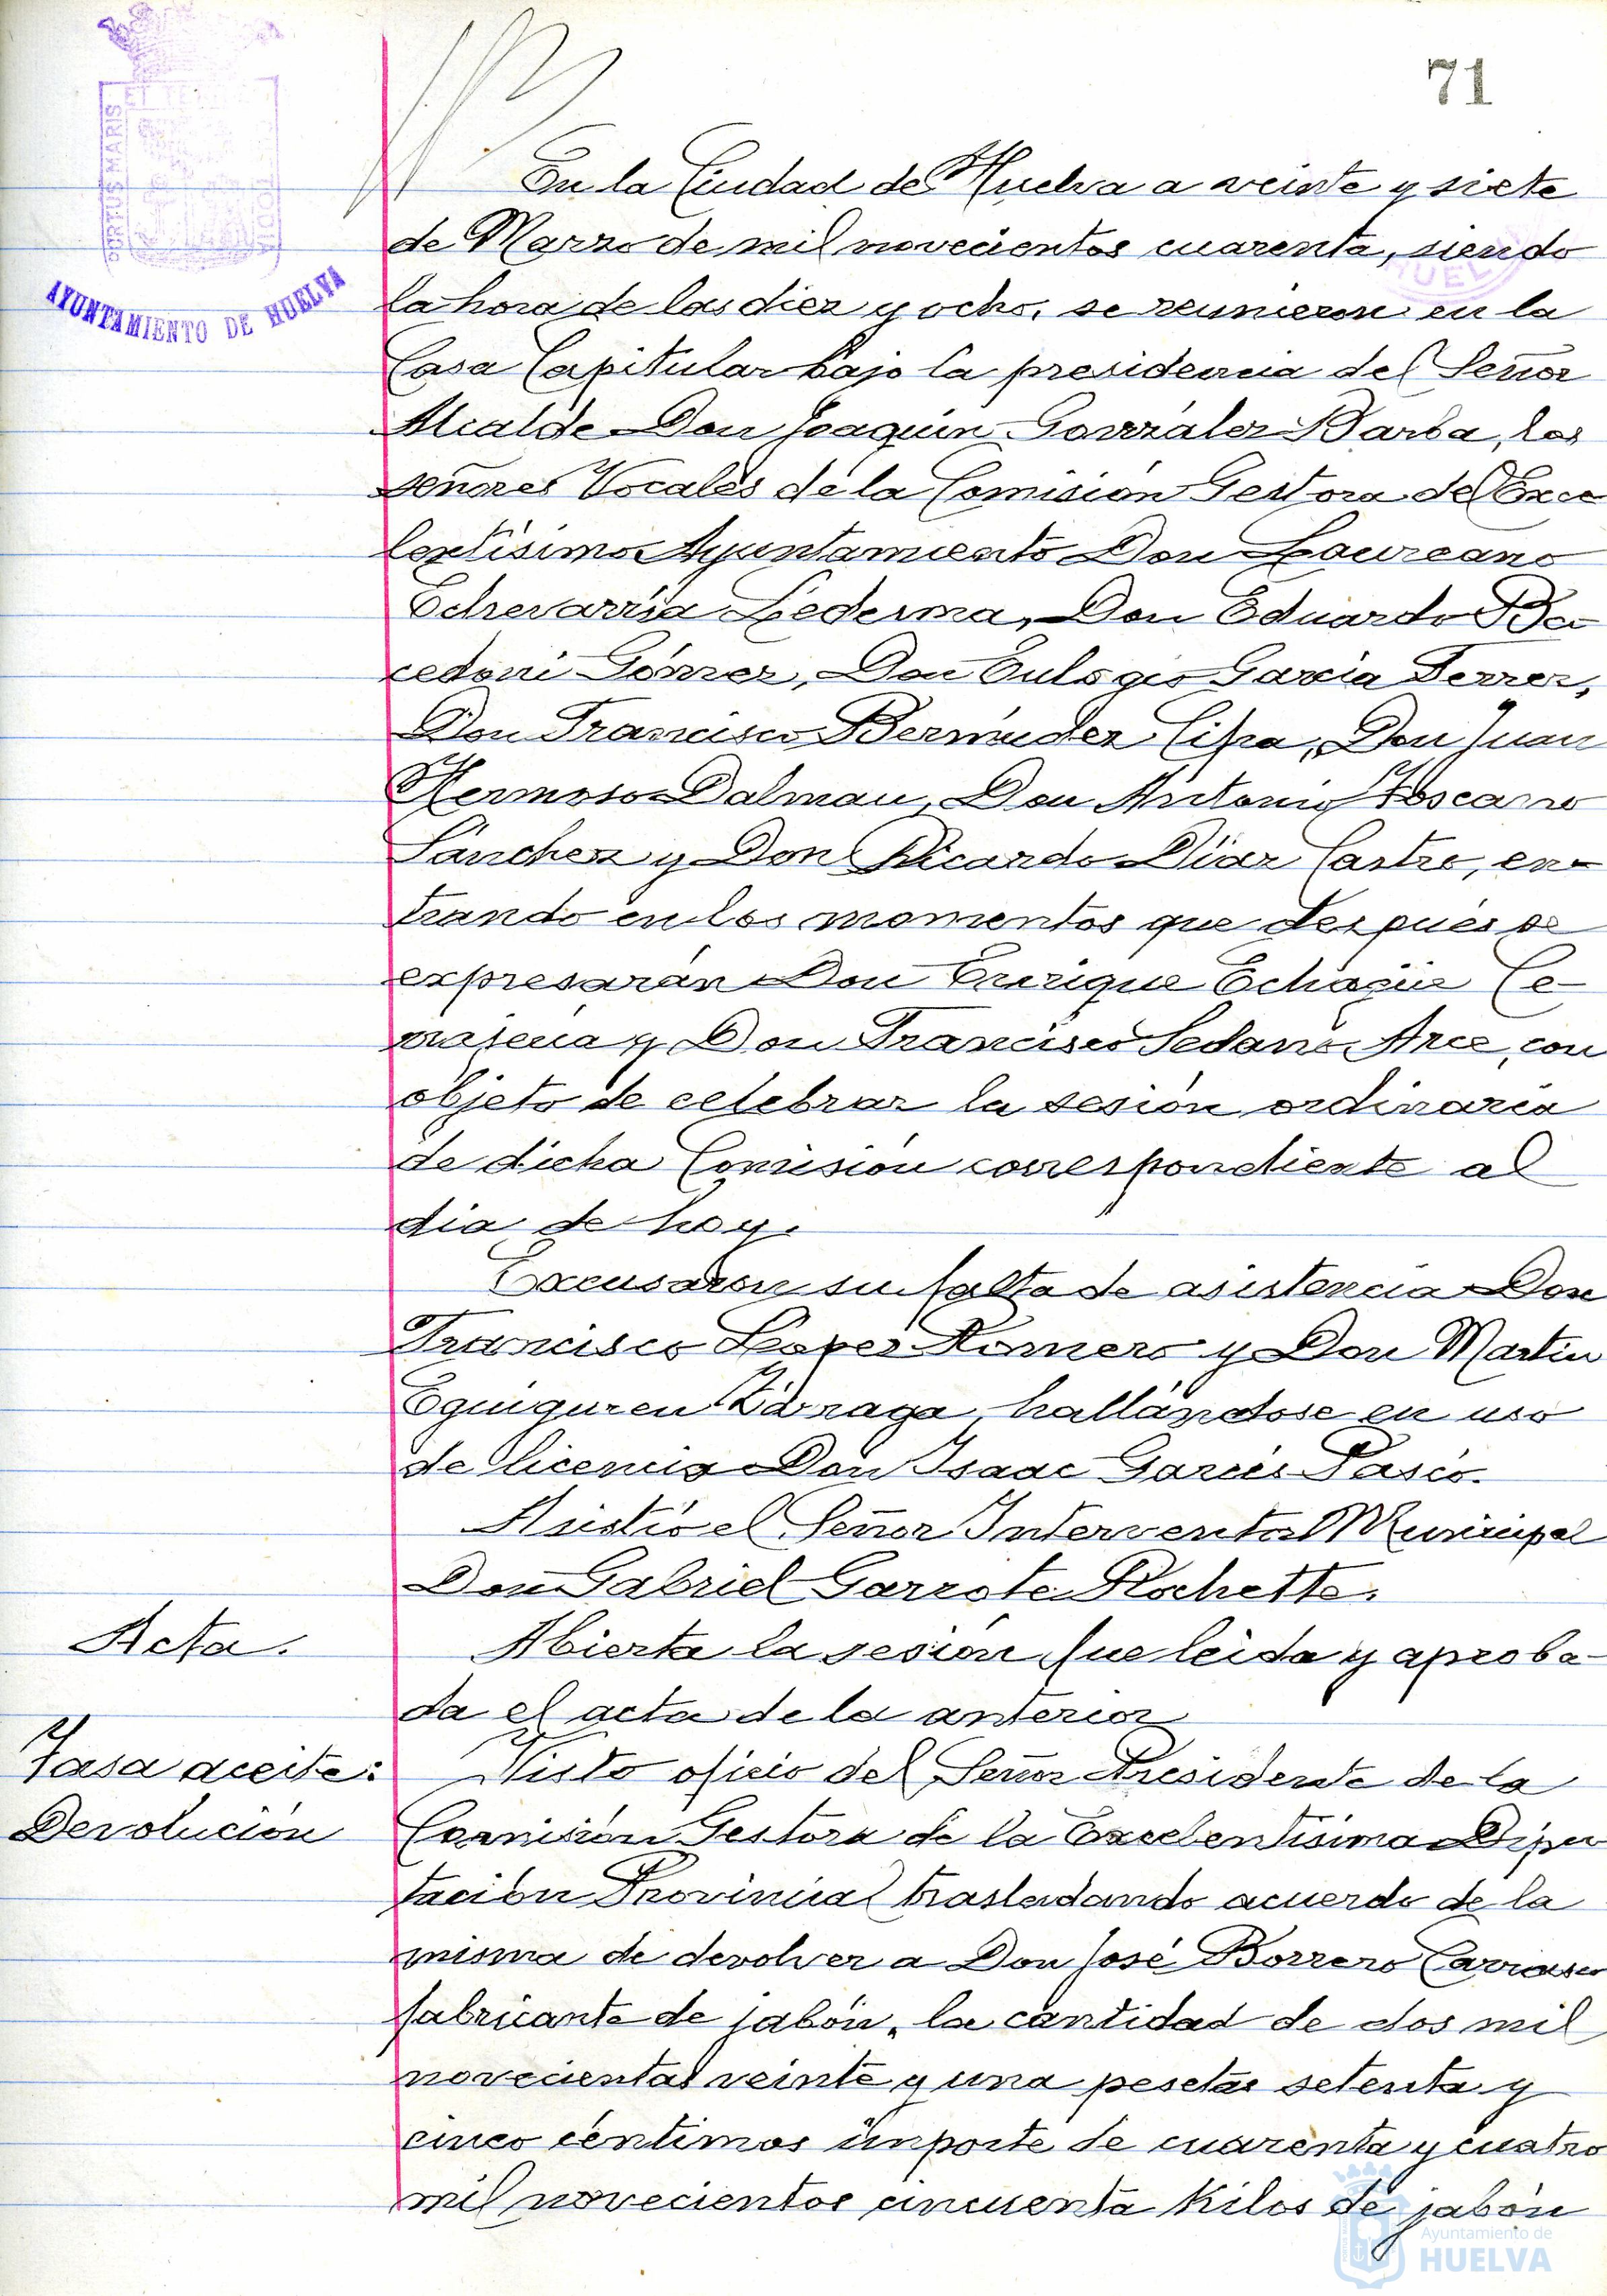 71
PORTUS MARIS
ET TERRE
CUSTODIA
AYUNTAMIENTO DE HUELVA
HUELVA
En la Ciudad de Huelva a veinte y siete
de Marzo de mil novecientos cuarenta, siendo
la hora de las diez y ocho, se reunieron en la
Casa Capitular bajo la presidencia del Señor
Alcalde Don Joaquín González Barba, los
señores Vocales de la Comisión Gestora del Exce
lentísimo Ayuntamiento Don Laureano
Echevarría Ledesma, Don Eduardo Ba
cedoni Gómez, Don Eulogio García Ferrer,
Don Francisco Bermúdez Cifra, Don Juan
Hermoso Dalmau, Don Antonio Toscano
Sánchez y Don Ricardo Díaz Castro, en-
trando en los momentos que después se
expresarán Don Enrique Echagüe Ce-
najena y Don Francisco Sedano Arce, con
objeto de celebrar la sesión ordinaria
de dicha Comisión correspondiente al
día de hoy.
Excusaron su falta de asistencia Don
Francisco López Romero y Don Martín
Eguiguren Zárraga, hallándose en uso
de licencia Don Isaac Garcés Pascó.
Asistió el Señor Interventor Municipal
Don Gabriel Garrote Rochette.
Acta.
Abierta la sesión fue leida y aproba-
da el acta de la anterior
Tasa aceite:
Devolución
Visto oficio del Señor Presidente de la
Comisión Gestora de la Excelentísima Dipu
tación Provincial trasladando acuerdo de la
misma de devolver a Don José Borrero Carrasco
fabricante de jabón, la cantidad de dos mil
novecientas veinte y una pesetas setenta y
cinco céntimos importe de cuarenta y cuatro
mil novecientos cincuenta Kilos de jabón
Ayuntamiento de
HUELVA